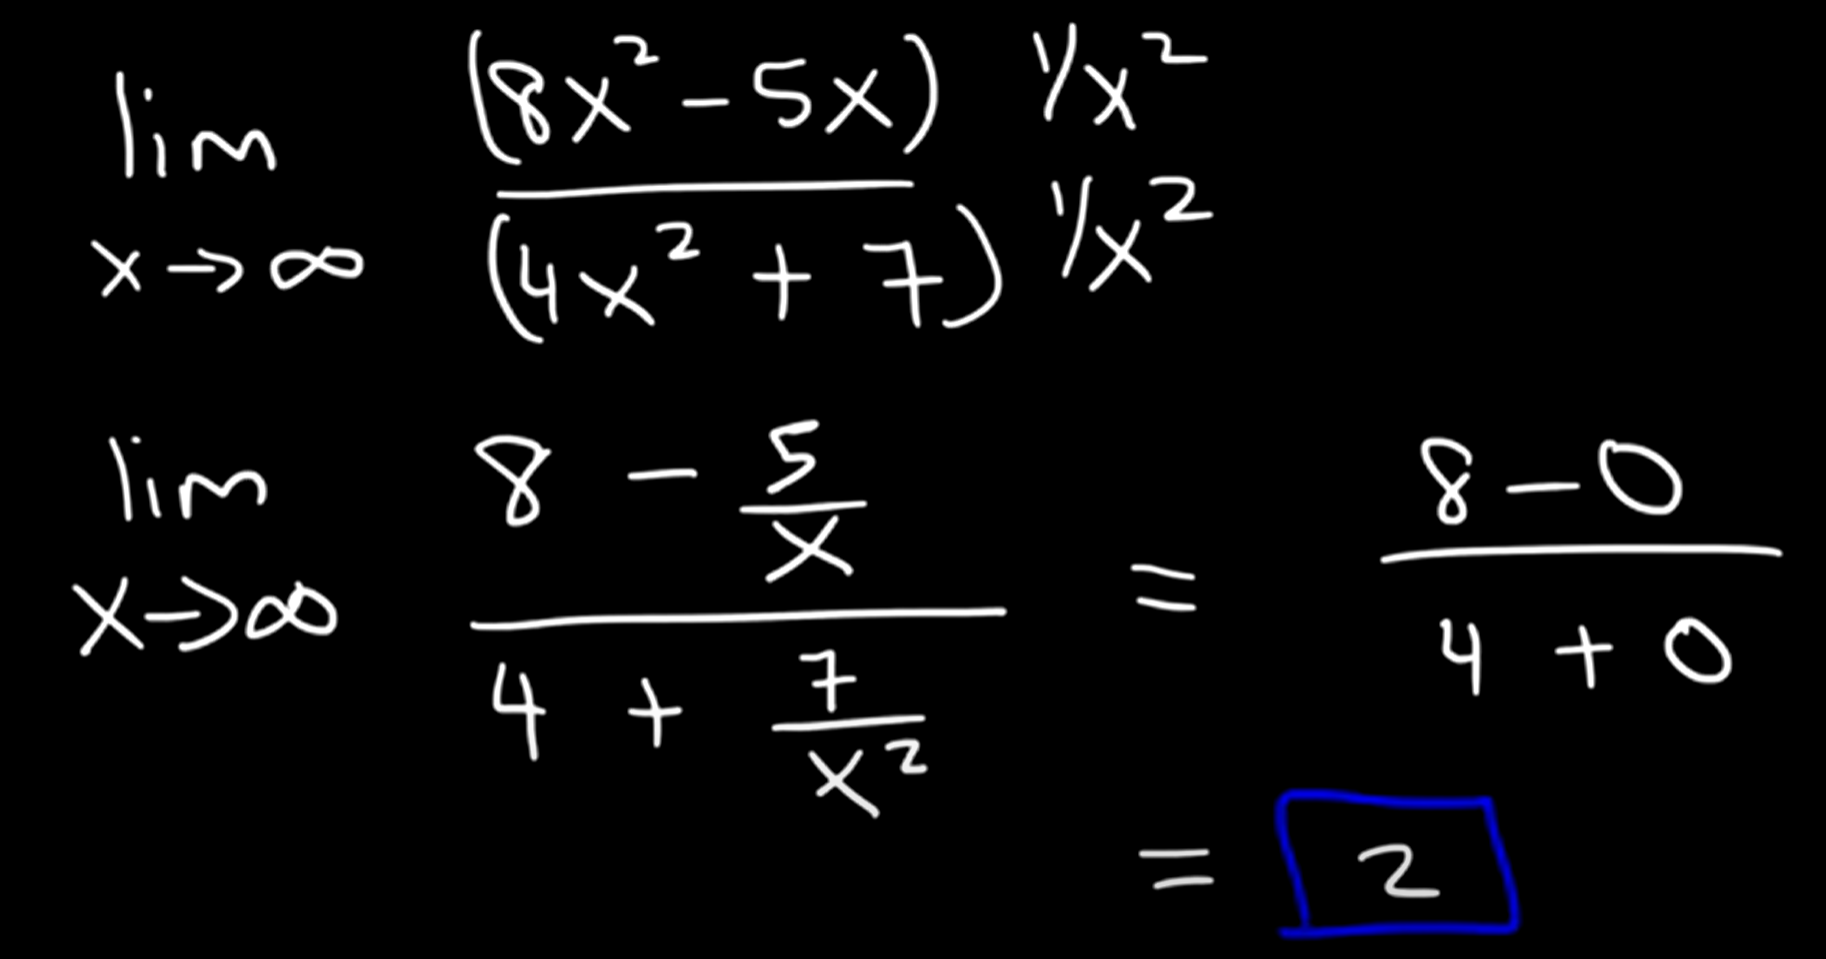 lim x→∞ (8x² - 5x) 1/x² / (4x² + 7) 1/x²
lim x→∞ (8 - 5/x) / (4 + 7/x²) = (8 - 0) / (4 + 0)
= 2